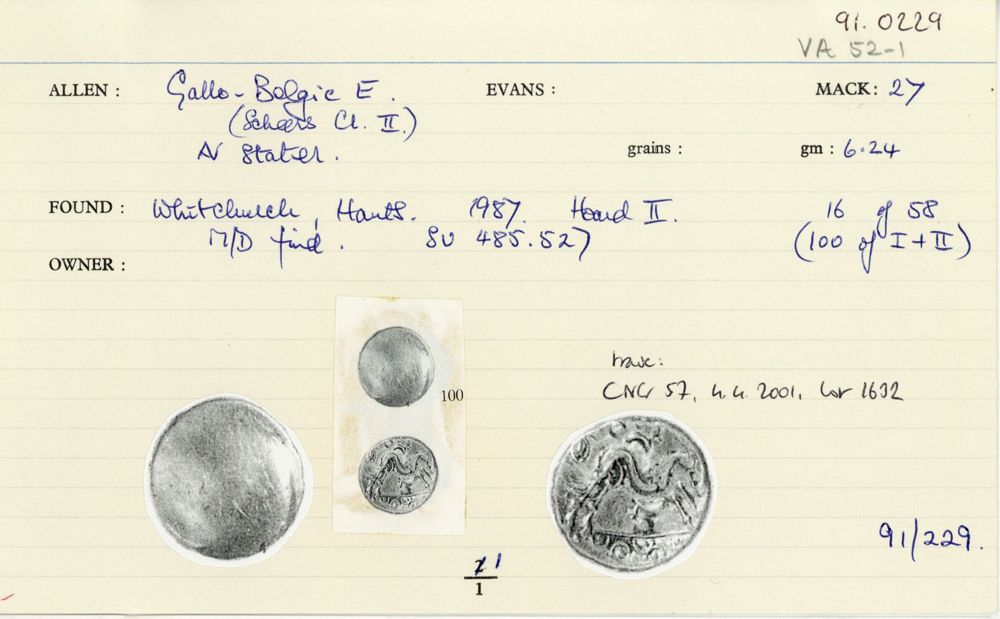 91.0229
VA 52-1
ALLEN : Gallo-Belgic E. EVANS : MACK: 27
(Scheers Cl. II.)
AV Stater. grains : gm : 6.24
FOUND : Whitchurch, Hants. 1987. Hoard II. 16 of 58
M/D find. SU 485.527 (100 of I + II)
OWNER :
100
trade:
CNG 57, 4.4. 2001, Lot 1632
91/229.
1
1